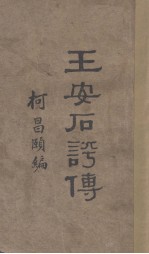 王安石評傳
柯昌頤編